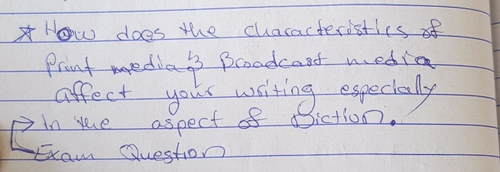 * How does the characteristics of
Print media & Broadcast media
affect your writing especially
In the aspect of Diction.
Exam Question